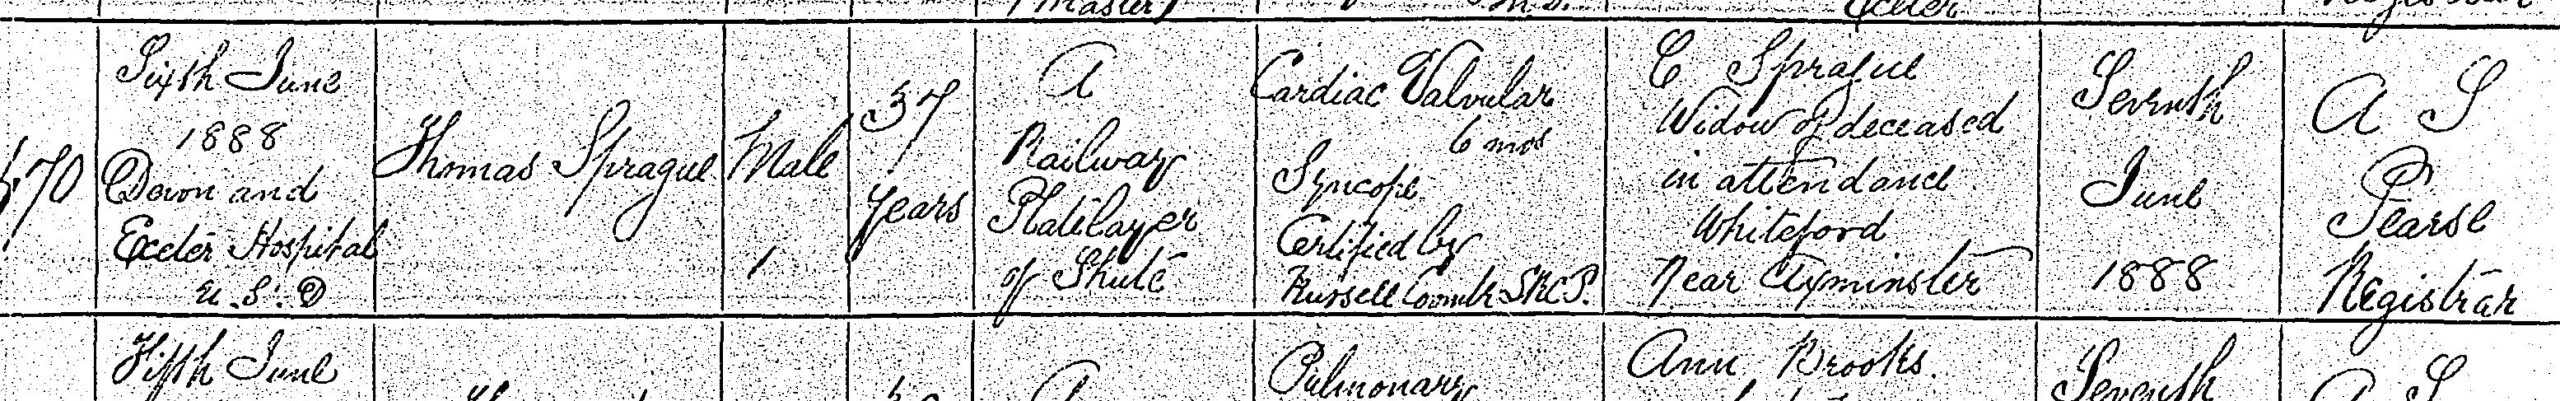 (Master)
Exeter
Registrar
Sixth June
1888
Devon and
Exeter Hospital
U.S.D
Thomas Sprague
Male
37
years
A
Railway
Platelayer
of Shute
Cardiac Valvular
6 mos
Syncope
Certified by
Russell Coombe
C Sprague
Widow of deceased
in attendance
Whiteford
Near Axminster
Seventh
June
1888
A S
Pearse
Registrar
Fifth June
A
Pulmonary
Ann Brooks.
Seventh
A S